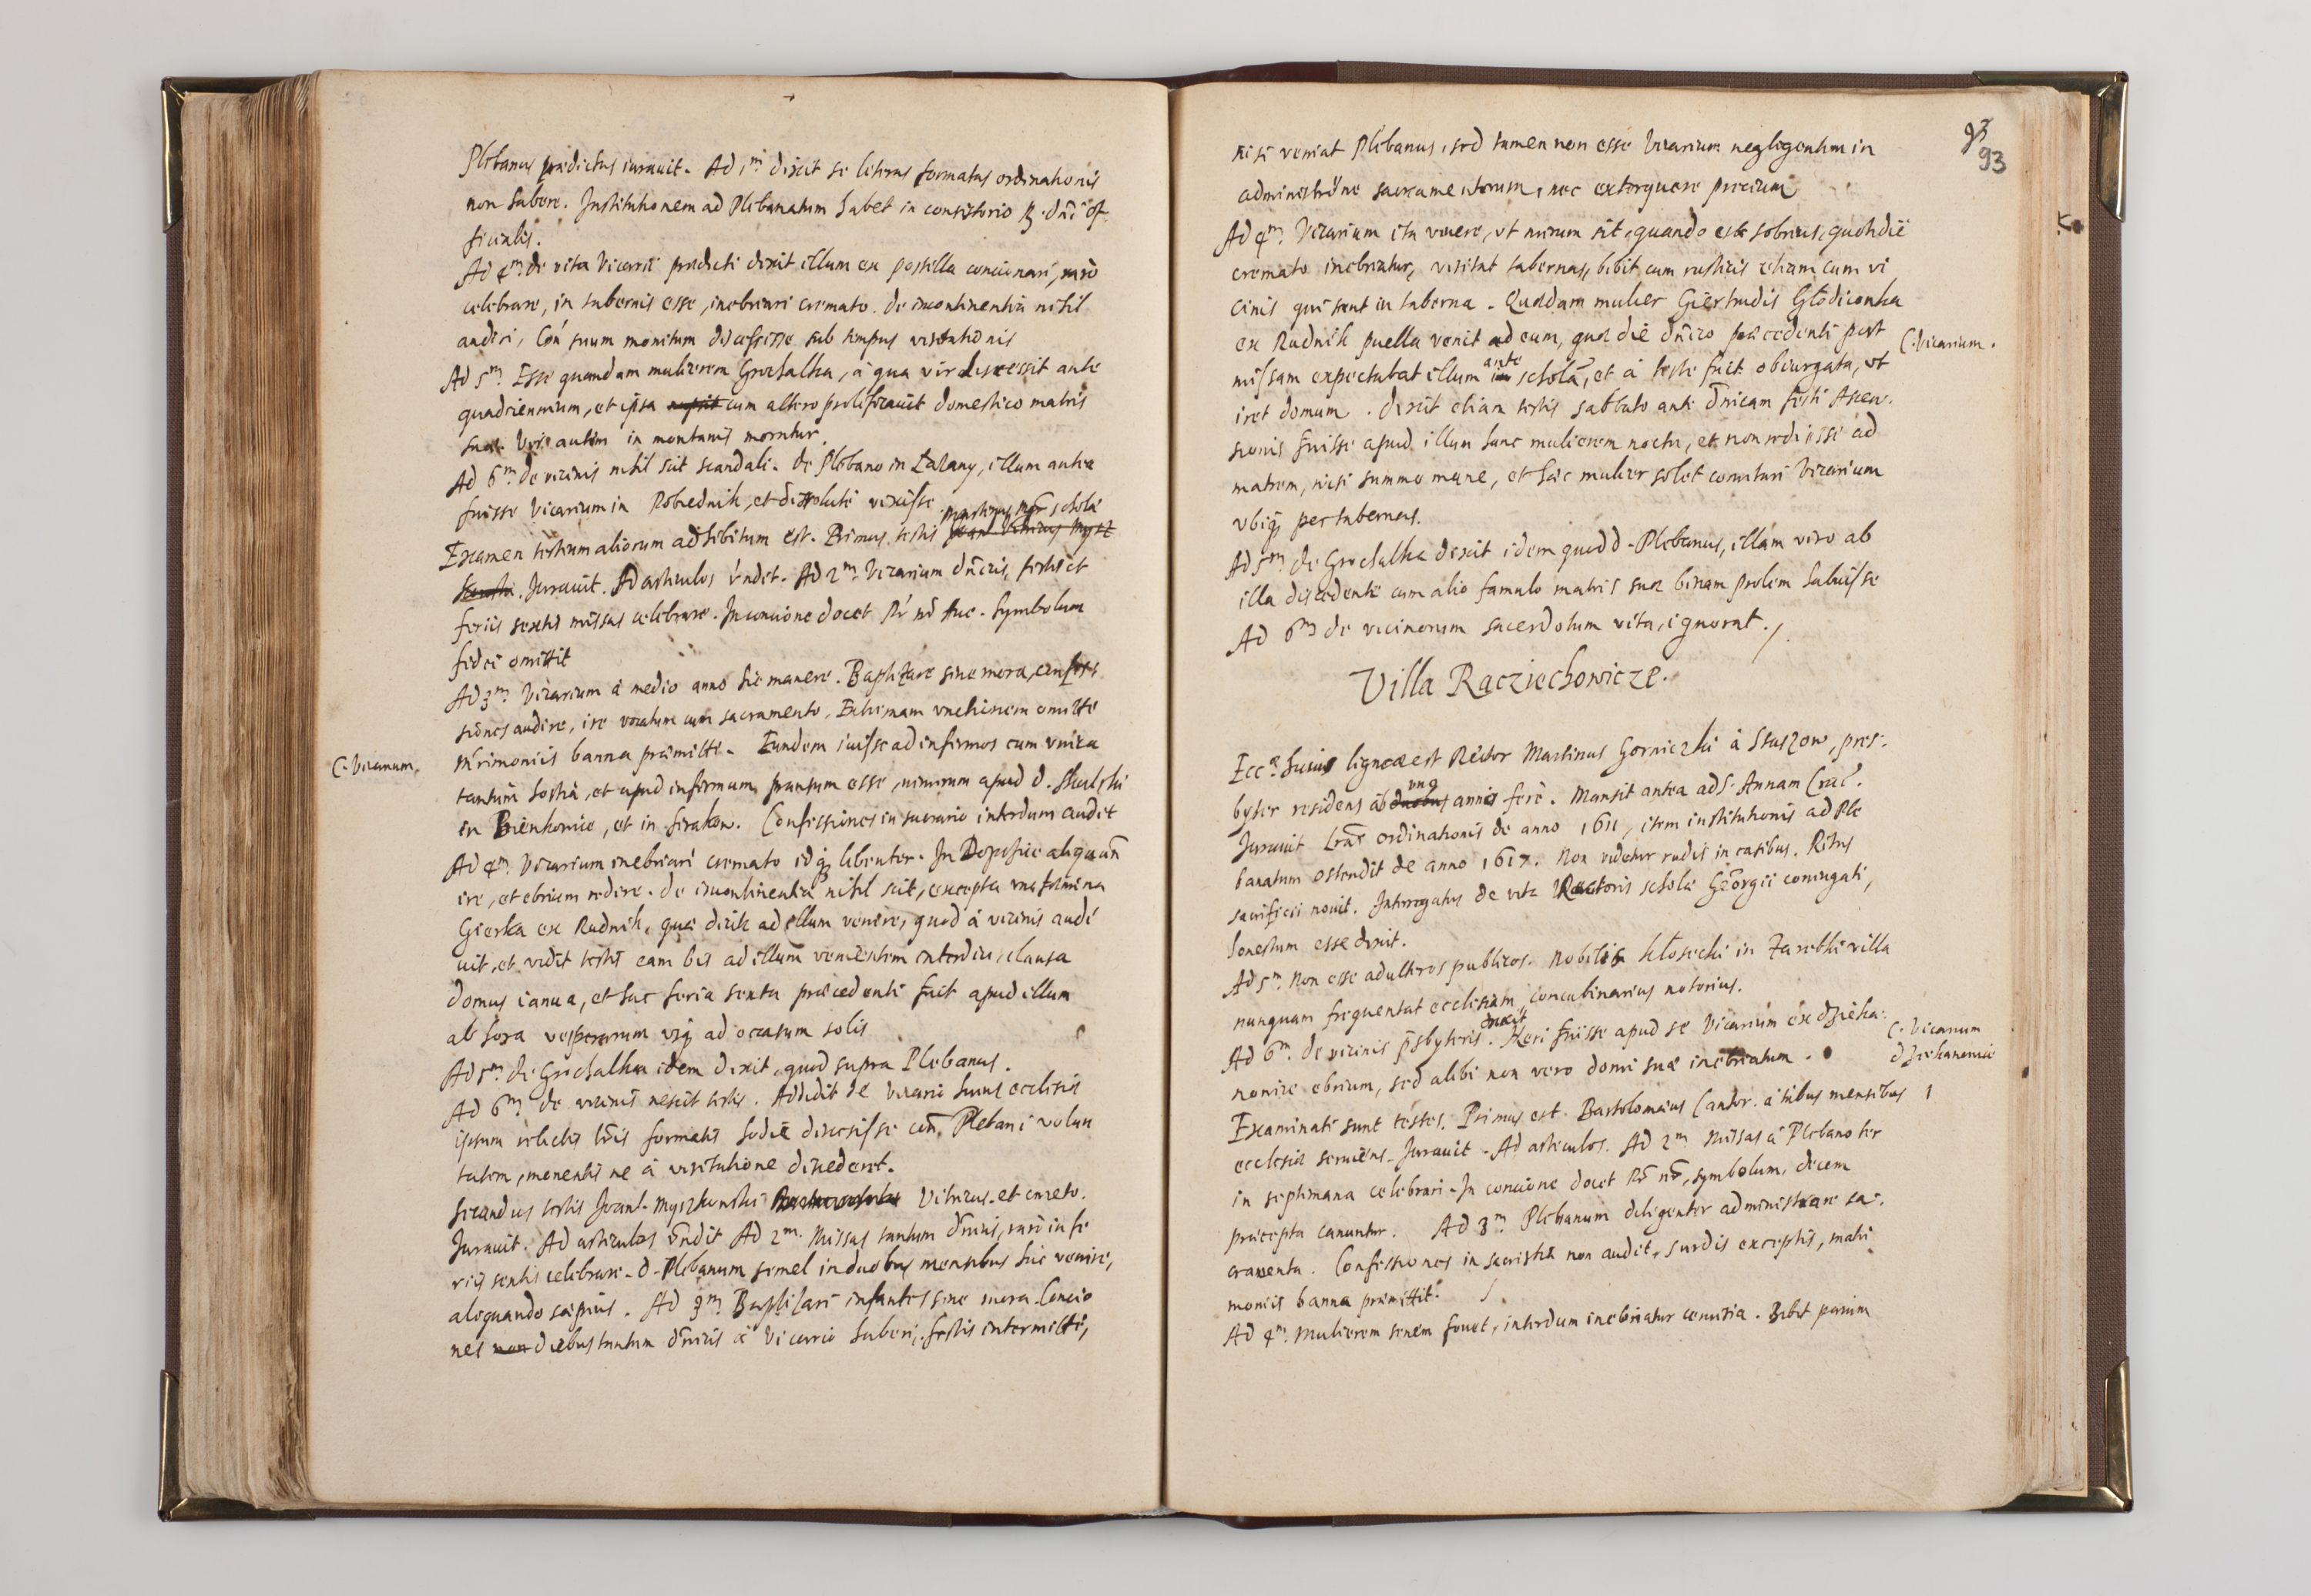 Plebanus prædictus iurauit. Ad 1m dixit se literas formatas ordinationis
non habere. Institutionem ad Plebanatum habet in consistorio R. dni of
ficialis.
Ad 4m de vita Vicarii prædicti dixit illum ex postilla concionari, raro
celebrare, in tabernis esse, inebriari cremato. de incontinentia nihil
audiri, suum monitum discessisse sub tempus visitationis
Ad 5m Esse quandam mulierem Grochalka, à qua vir discessit ante
quadriennium, et ipsa cum altero prolificauit domestico matris
suæ. Vir autem in montanis moratur.
Ad 6m de vicinis nihil scit scandali. de Plebano in Lazany, illum antea
fuisse Vicarium in Kobiednik, et dissolute vixisse.
Examen testium aliorum adhibitum est. Primus testis Martinus mgr scholæ
Jurauit. Ad articulos rndet. Ad 2m Vicarium dnicis, festis et
feriis sextis missas celebrare. In concione docet Pr nr Aue. Symbolum
fidei omittit
Ad 3m Vicarium à medio anno hic manere. Baptizare sine mora, confes
siones audire, ire vocatum cum sacramento, Extremam vnctionem omitte
mrimoniis banna præmitti. Eundem iuisse ad infirmos cum vnica
C. Vicarium.
tantum hostia, et apud infirmum pransum esse, nimirum apud d. Skulski
in Bienkowice, et in Sirakow. Confessiones in sacrario interdum audit
Ad 4m Vicarium inebriari cremato idq libenter. In Dopsice aliquan
ire, et ebrium redire. de incontinentia nihil scit, excepta vna fœmina
Gierka ex Rudnik, quæ dicit ad illum venire, quod à vicinis audi
uit, et vidit testis eam bis ad illum venientem interdiu, clausa
domus ianua, et hac feria sexta præcedenti fuit apud illum
ab hora vesperarum vsq ad occasum solis
Ad 5m de Grochalka idem dixit, quod supra Plebanus.
Ad 6m de vicinis nescit testis. Addidit de Vicario huius ecclesiæ
ipsum relictis lris formatis hodie discessisse con Plebani volun
tatem, monentis ne à visitatione discederet.
Secundus testis Joanes Myszkowski Vitricus et
Jurauit. Ad articulos rndit Ad 2m Missas tantum dnicis, raro in fe
riis sextis celebrare. d. Plebanum semel in duobus mensibus hic venire,
aliquando sæpius. Ad 3m Baptizari infantes sine mora. Concio
nes non diebus tantum dnicis à Vicario haberi, festis intermitti,
93
93
nisi veniat Plebanus, sed tamen non esse Vicarium negligentem in
administrone sacramentorum, nec extorquere precium
Ad 4m Vicarium ita viuere, vt mirum sit, quando est sobrius, quotidie
cremato inebriatur, visitat tabernas, bibit cum rusticis etiam cum vi
cinis qui sunt in taberna. Quædam mulier Giertrudis Glodiconka
ex Rudnik puella venit ad eum, quæ die dnico præcedenti post
C. Vicarium.
missam expectabat illum ante scholã, et à teste fuit obiurgata, vt
iret domum. dixit etiam testis sabbato ante dnicam festi Ascen.
sionis fuisse apud illum hanc mulierem noctu, et non rediisse ad
matrem, nisi summo mane, et hæc mulier solet comitari Vicarium
vbiq per tabernas.
Ad 5m de Grochalka dixit idem quod d. Plebanus, illam viro ab
illa discedente cum alio famulo matris suæ binam prolem habuisse
Ad 6m de vicinorum sacerdotum vita, ignorat.
Villa Racziechowicze.
Eccæ huius ligneæ est Rector Martinus Gorniczki à Staszow, pres.
byter residens ab vno duobus annis fere. Mansit antea ad S. Annam Crac.
Jurauit Lras ordinationis de anno 1611, item institutionis ad Ple
banatum ostendit de anno 1617. Non videtur rudis in casibus. Ritus
sacrificii nouit. Interrogatus de vita Rectoris scholæ Georgii coniugati,
honestum esse dixit.
Ad 5m Non esse adulteros publicos. Nobilis Klosecki in Zarebki villa
nunquam frequentat ecclesiam, concubinarius notorius.
Ad 6m de vicinis psbyteris. dixit Heri fuisse apud se Vicarium ex dzieka.
C. Vicarium
dziekanowice
nowice ebrium, sed alibi non vero domi suæ inebriatum.
Examinati sunt testes. Primus est Bartolomæus Cantor. à tribus mensibus 1
ecclesiæ seruiens. Jurauit. Ad articulos. Ad 2m Missas à Plebano ter
in septimana celebrari. In concione docet Pr nr, symbolum, decem
præcepta canuntur. Ad 3m Plebanum diligenter administrare sa.
cramenta. Confessiones in sacristia non audit, surdis exceptis, matri
moniis banna præmittit.
Ad 4m Mulierem senem fouet, interdum inebriatur ceruisia. Bibit parum